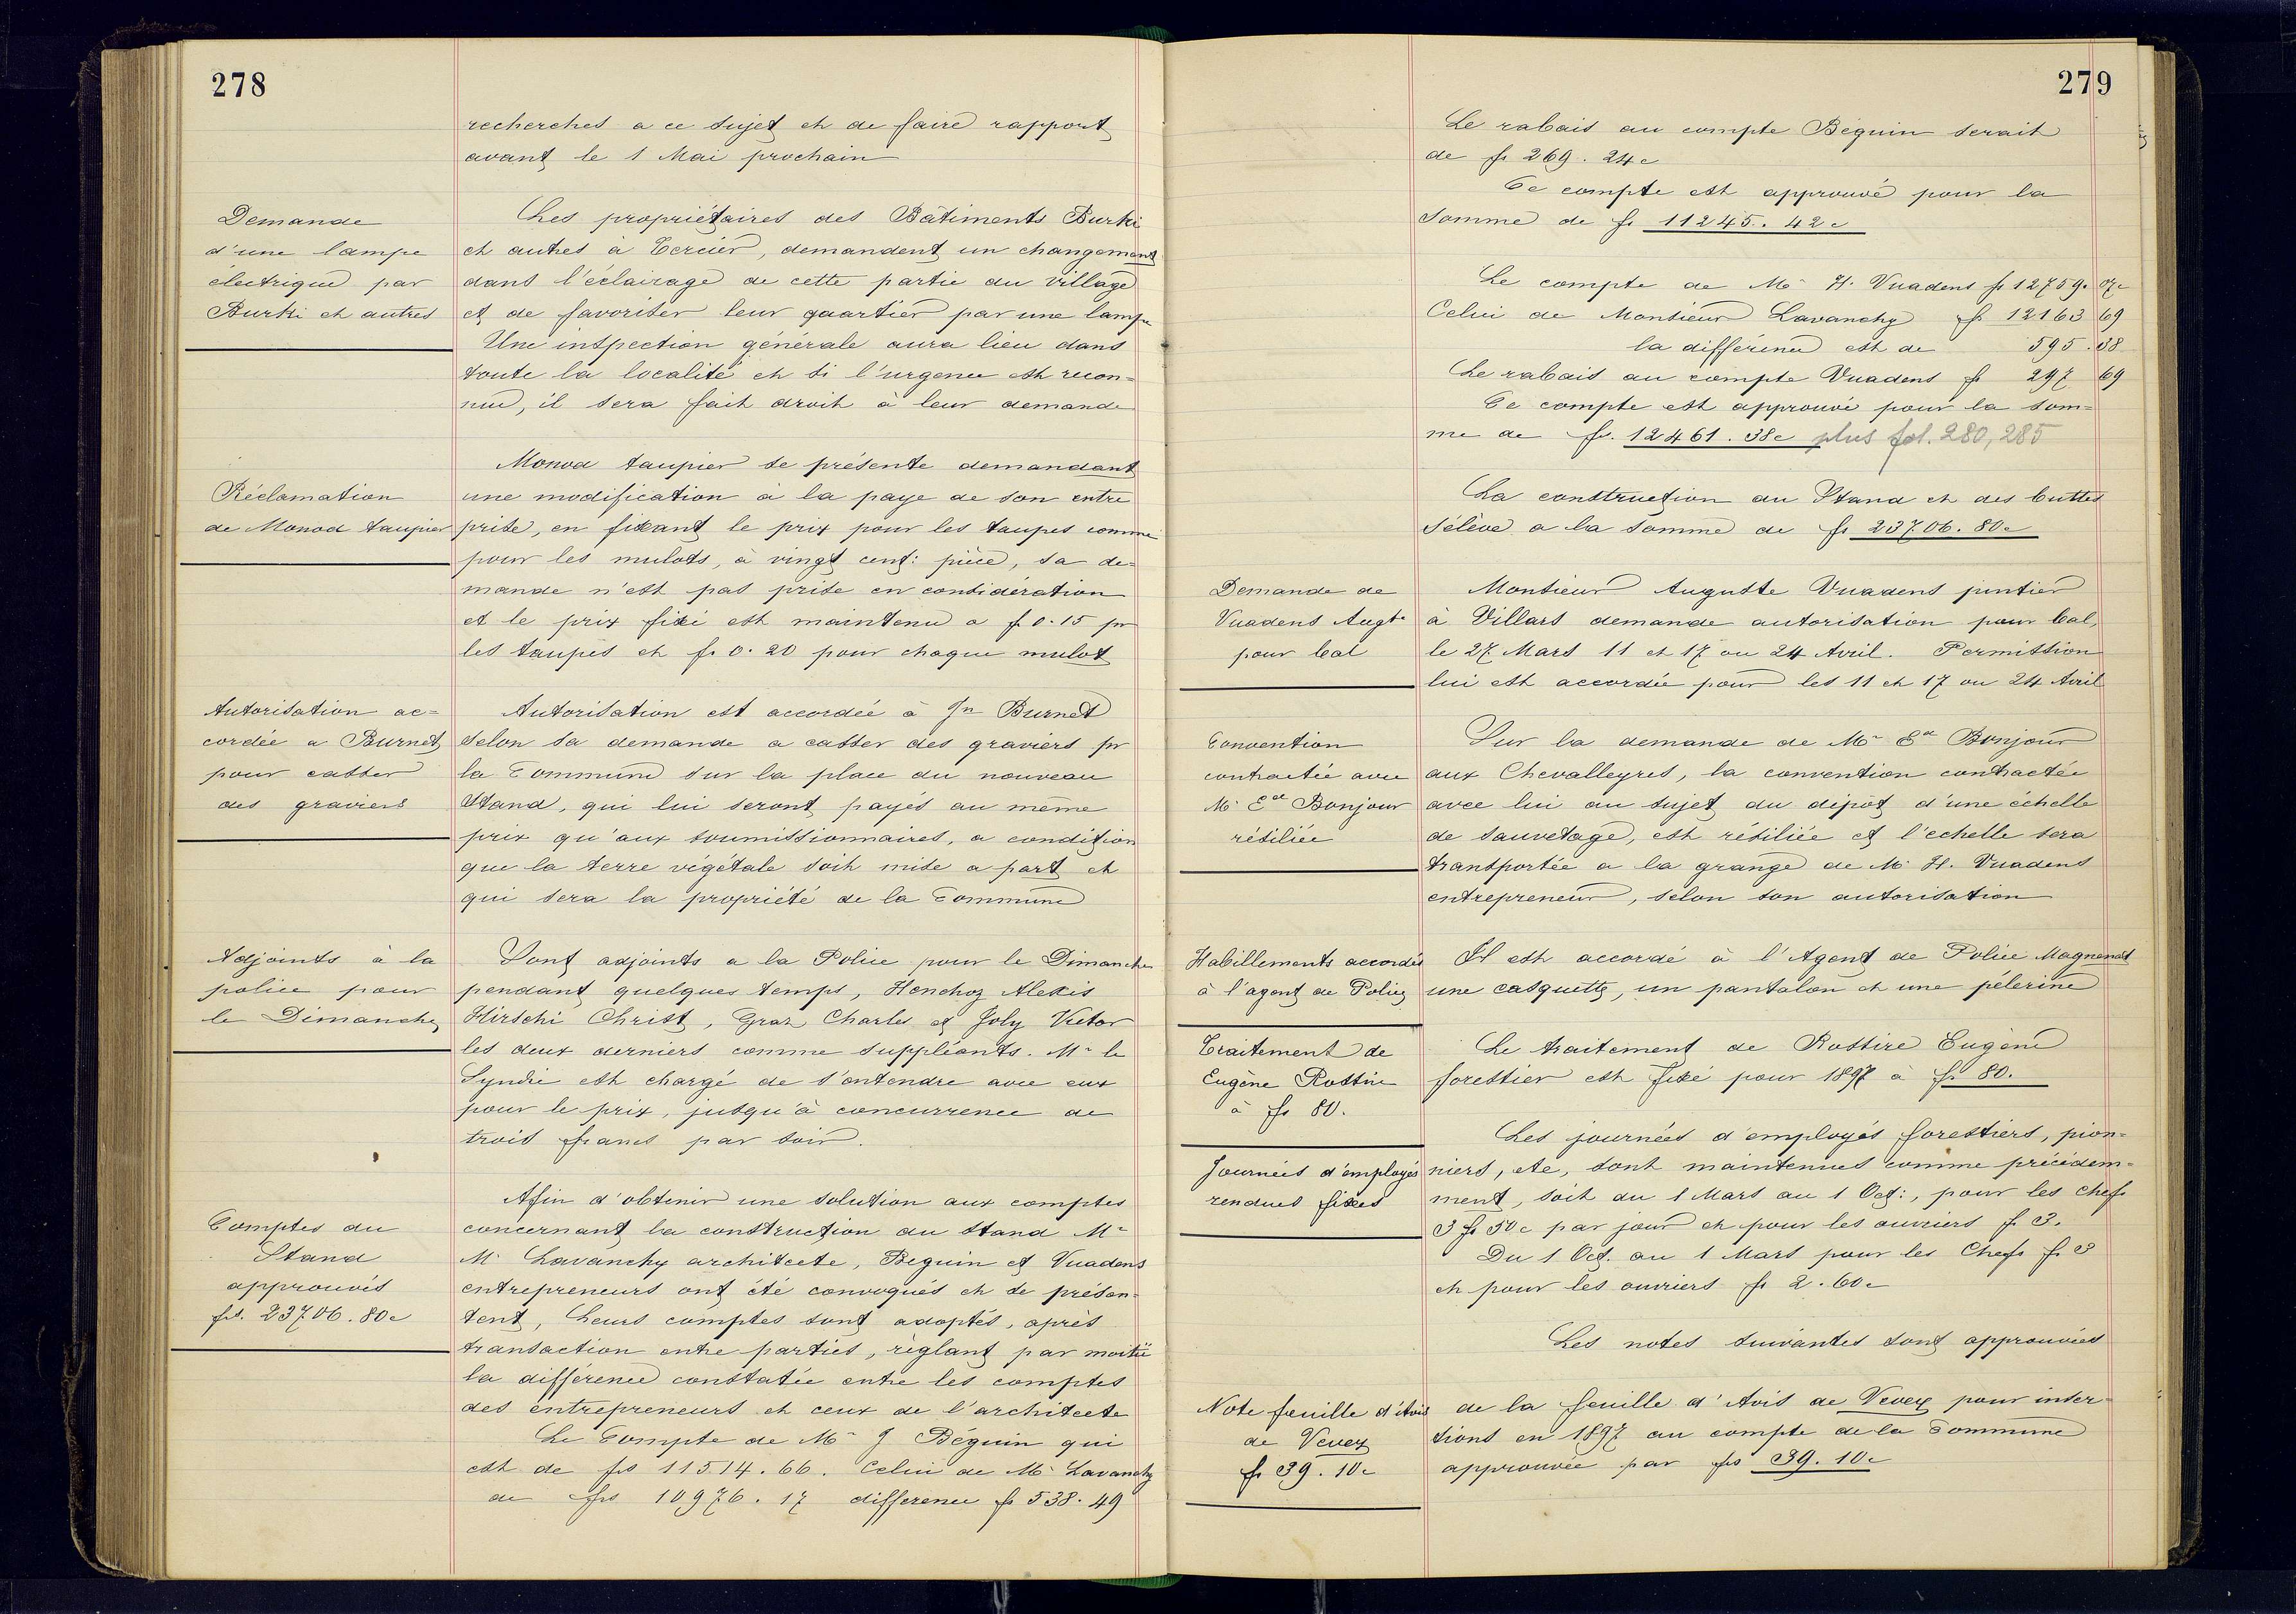 278
recherches a ce sujet et de faire rapport
avant le 1 Mai prochain
Demande
d'une lampe
électrique par
Burki et autres
Les propriétaires des Bâtiments Burki
et autres à Tercier, demandent un changement
dans l'éclairage de cette partie du village
et de favoriser leur quartier par une lampe
Une inspection générale aura lieu dans
toute la localité et si l'urgence est recon=
nue, il sera fait droit à leur demande
Réclamation
de Monod taupier
Monod taupier se présente demandant
une modification à la paye de son entre
prise, en fixant le prix pour les taupes comme
pour les mulots, à vingt cent: pièce, sa de=
mande n'est pas prise en considération
et le prix fixé est maintenu a f 0.15 pr
les taupes et fr 0.20 pour chaque mulot
Autorisation ac=
cordée a Burnet
pour casser
des graviers
Autorisation est accordée à Jn Burnet
selon sa demande a casser des graviers pr
la Commune sur la place du nouveau
Stand, qui lui seront payés au même
prix qu'aux soumissionnaires, a condition
que la terre végétale soit mise a part et
qui sera la propriété de la Commune
Adjoints à la
police pour
le Dimanche
Sont adjoints a la Police pour le Dimanche
pendant quelques temps, Henchoz Alexis
Hirschi Christ, Graz Charles et Joly Victor
les deux derniers comme suppléants. Mr le
Syndic est chargé de s'entendre avec eux
pour le prix, jusqu'à concurrence de
trois francs par soir.
Comptes du
Stand
approuvés
frs. 23706.80c
Afin d'obtenir une solution aux comptes
concernant la construction du stand Mr
Mr Lavanchy architecte, Beguin et Vuadens
entrepreneurs ont été convoqués et se présen=
tent, Leurs comptes sont adoptés, après
transaction entre parties, règlant par moitié
la différence constatée entre les comptes
des entrepreneurs et ceux de l'architecte
Le Compte de Mr J Béguin qui
est de frs 11514.66. Celui de Mr Lavanchy
de frs 10976.17 difference fr 538.49
279
Le rabais au compte Béguin serait
de fr 269.24c
Ce compte est approuvé pour la
somme de fr 11245.42c
Le compte de Mr H. Vuadens fr 12759.07c
Celui de Monsieur Lavanchy fr 12163 69
la différence est de 595.38
Le rabais au compte Vuadens fr 297 69
Ce compte est approuvé pour la som=
me de fr. 12461.38c plus fol. 280, 285
La construction du Stand et des buttes
s'élève a la somme de fr 23706.80c
Demande de
Vuadens Augte
pour bal
Monsieur Auguste Vuadens pintier
à Villars demande autorisation pour bal,
le 27 Mars 11 et 17 ou 24 Avril. Permission
lui est accordée pour les 11 et 17 ou 24 Avril
Convention
contractée avec
Mr Ed Bonjour
résiliée
Sur la demande de Mr Ed Bonjour
aux Chevalleyres, la convention contractée
avec lui au sujet du dépôt d'une échelle
de sauvetage, est résiliée et l'echelle sera
transportée a la grange de Mr H. Vuadens
entrepreneur, selon son autorisation
Habillements accordés
à l'agent de Police
Il est accordé à l'Agent de Police Magnenat
une casquette, un pantalon et une pélerine
Traitement de
Eugène Rossire
à fr 80.
Le traitement de Rossire Eugène
forestier est fixé pour 1897 à fr 80.
Journées d'employés
rendues fixes
Les journées d'employés forestiers, pion=
niers, etc, sont maintenues comme précédem=
ment, soit du 1 Mars au 1 Oct:, pour les chefs
3 fr 50c par jour et pour les ouvriers fr 3.
Du 1 Oct. au 1 Mars pour les Chefs fr 3
et pour les ouvriers fr 2.60c
Les notes suivantes sont approuvées
Note feuille d'Avis
de Vevey
fr 39.10c
de la feuille d'Avis de Vevey pour inser=
tions en 1897 au compte de la Commune
approuvée par frs 39.10c